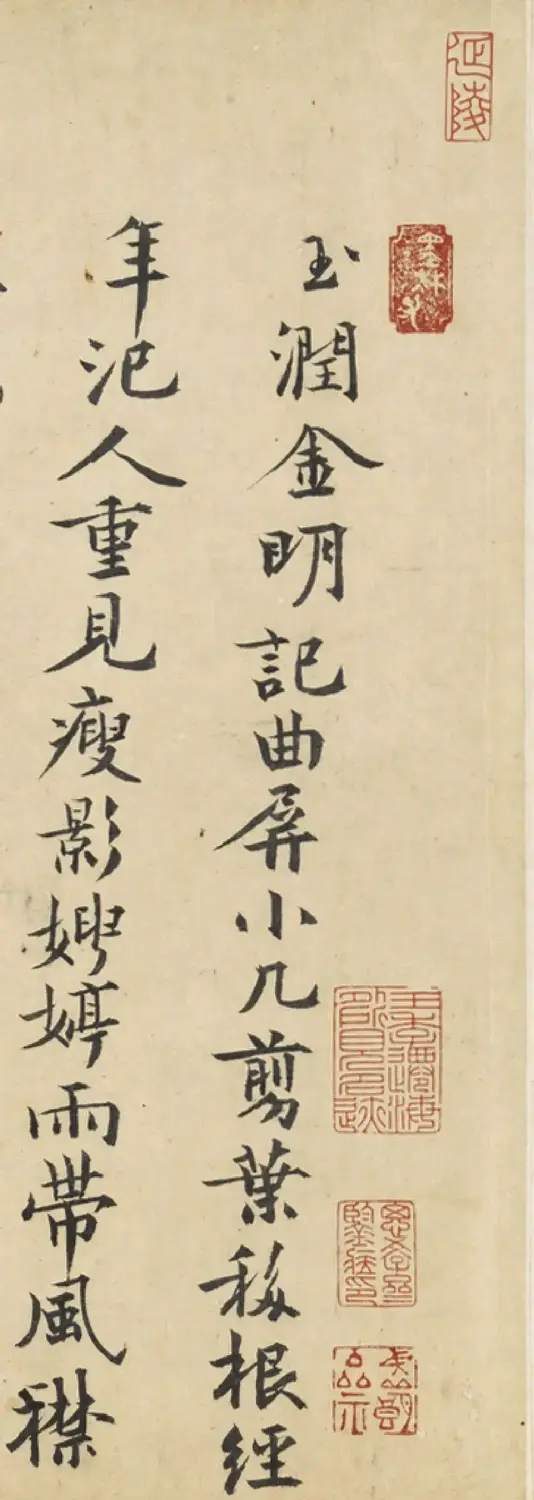 玉潤金明記曲屏小几剪葉移根經
年汜人重見瘦影娉婷雨帶風襟